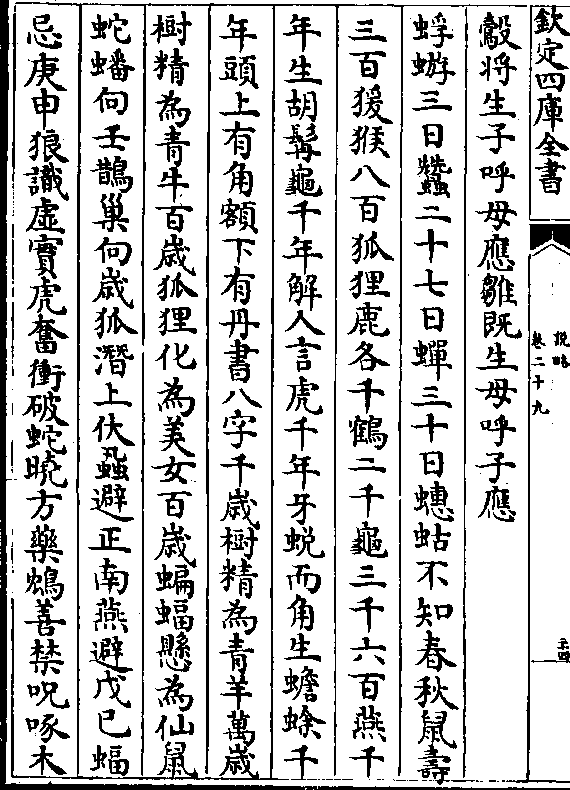 欽定四庫全書
説略
卷二十九
二十四
鷇將生子呼母應雛既生母呼子應
蜉蝣三日蠶二十七日蟬三十日蟪蛄不知春秋鼠壽
三百猨猴八百狐狸鹿各千鶴二千龜三千六百燕千
年生胡髯龜千年解人言虎千年牙蜕而角生蟾蜍千
年頭上有角額下有丹書八字千歲樹精為青羊萬歲
樹精為青牛百歲狐狸化為美女百歲蝙蝠懸為仙鼠
蛇蟠向壬鵲巢向歲狐潛上伏蝨避正南燕避戊己蝠
忌庚申狼識虛實虎奮衝破蛇曉方藥鴆善禁呪啄木